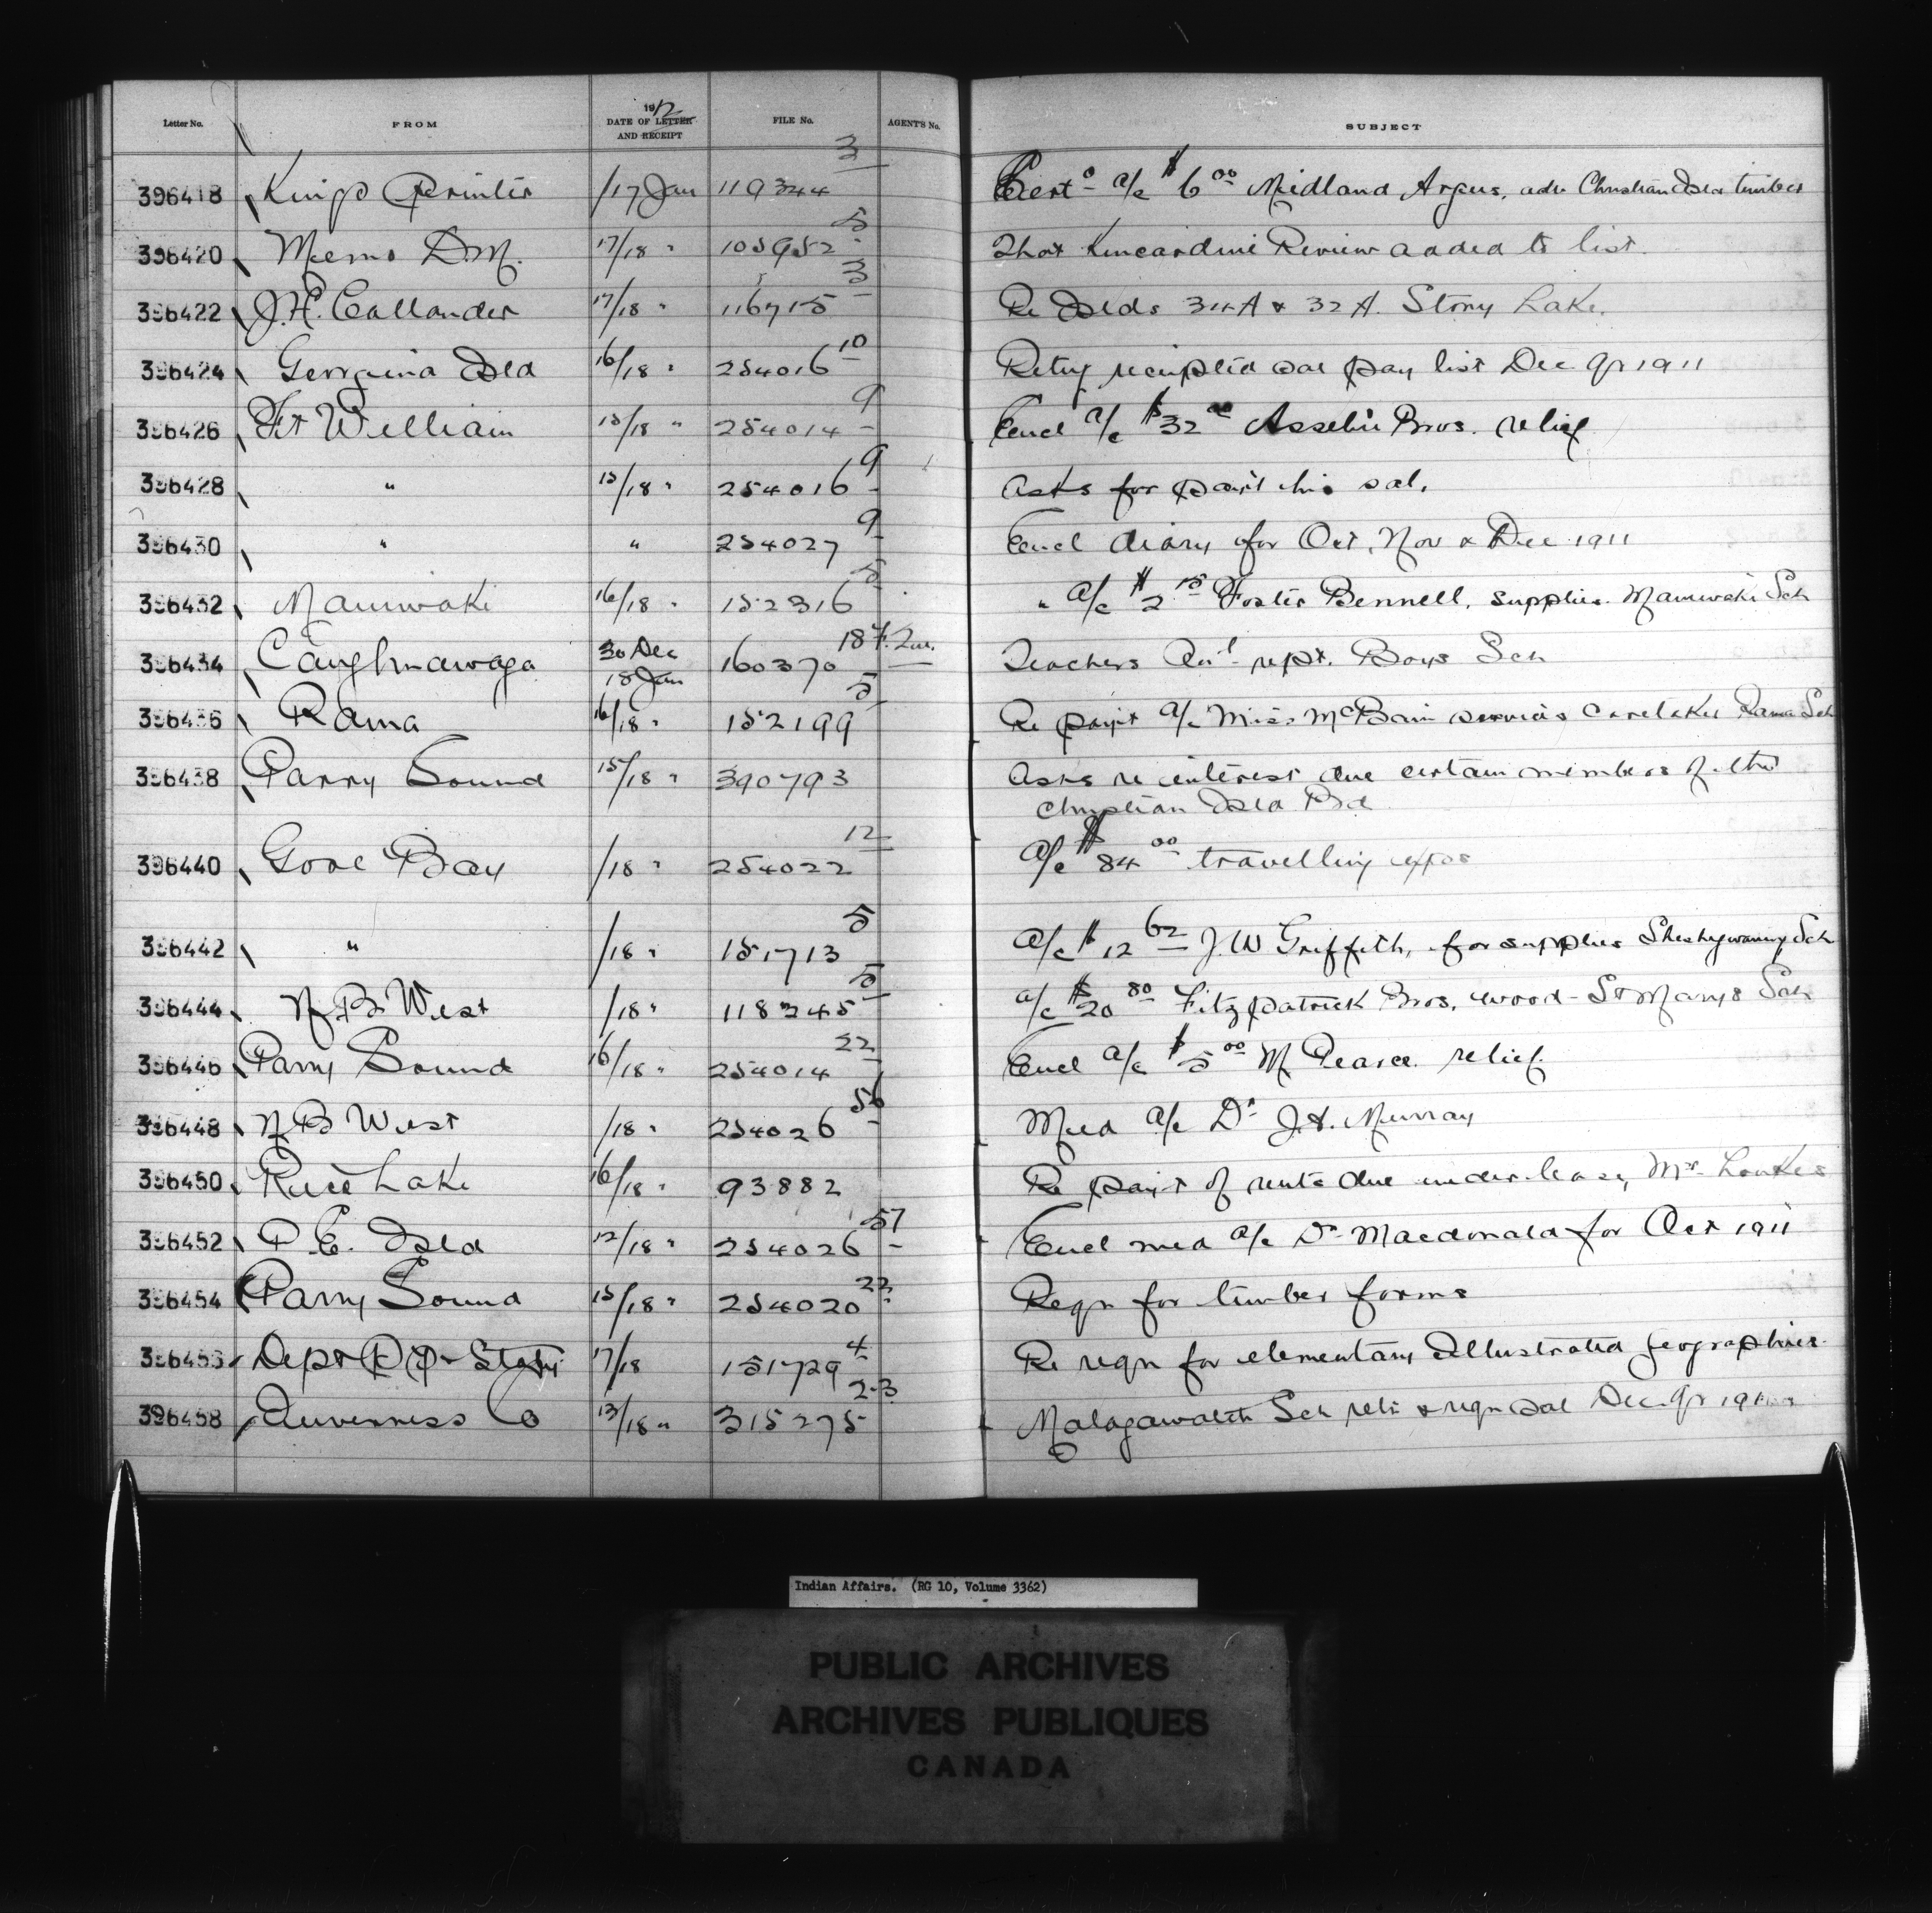 Letter No. FROM 1912 DATE OF LETTER AND RECEIPT FILE No. AGENT'S No. SUBJECT
396418 Kings Printer /17 Jan 119344 3 Cert⁰ a/c $6 00 Midland Argus, adv Christian Isld timber
396420 Memo D.M. 17/18 " 105952 5 That Kincardine Review added to list.
396422 J.H. Callander 17/18 " 116715 3 Re Islds 34A & 32A. Stony Lake.
396424 Georgina Isld 16/18 " 254016 10 Retng receipted sal pay list Dec. Qr 1911
396426 Ft William 15/18 " 254014 9 Encl a/c $32 00 Asselin Bros. relief
396428 " 15/18 " 254016 9 Asks for paym't his sal.
396430 " " 254027 9 Encl diary for Oct, Nov & Dec 1911
396432 Maniwaki 16/18 " 152316 5 " a/c $2 15 Foster Bennell, supplies. Maniwaki Sch
396434 Caughnawaga 30 Dec 18 Jan 160370 18 Teachers An'l rept. Boys Sch
396436 Rama 16/18 " 152199 5 Re paymt a/c Miss McBain services caretaker Rama Sch
396438 Parry Sound 15/18 " 390793 Asks re interest due certain members of the
Christian Isld Bd
396440 Gore Bay /18 " 254022 12 a/c $84 00 travelling expss
396442 " /18 " 151713 5 a/c $12 62 J.W Griffith, for supplies Sheshegwaning Sch
396444 N B West /18 " 118245 5 a/c $20 80 Fitzpatrick Bros. wood - St Marys Sch
396446 Parry Sound 16/18 " 254014 22 Encl a/c $5 00 M Pearce. relief.
396448 N B West /18 " 254026 56 Med a/c Dr J.H. Murray
396450 Rice Lake 16/18 " 93882 Re paymt of rents due under lease, Mr
396452 P.E. Isld 12/18 " 254026 57 Encl med a/c Dr Macdonald for Oct 1911
396454 Parry Sound 15/18 " 254020 22 Reqn for timber forms
396456 Dept P P & Staty 17/18 151729 4 Re reqn for elementary Illustrated geographies
396458 Inverness Co 13/18 " 315275 2-3 Malagawatch Sch retn & reqn sal Dec. Qr 1911
Indian Affairs. (RG 10, Volume 3362)
PUBLIC ARCHIVES
ARCHIVES PUBLIQUES
CANADA